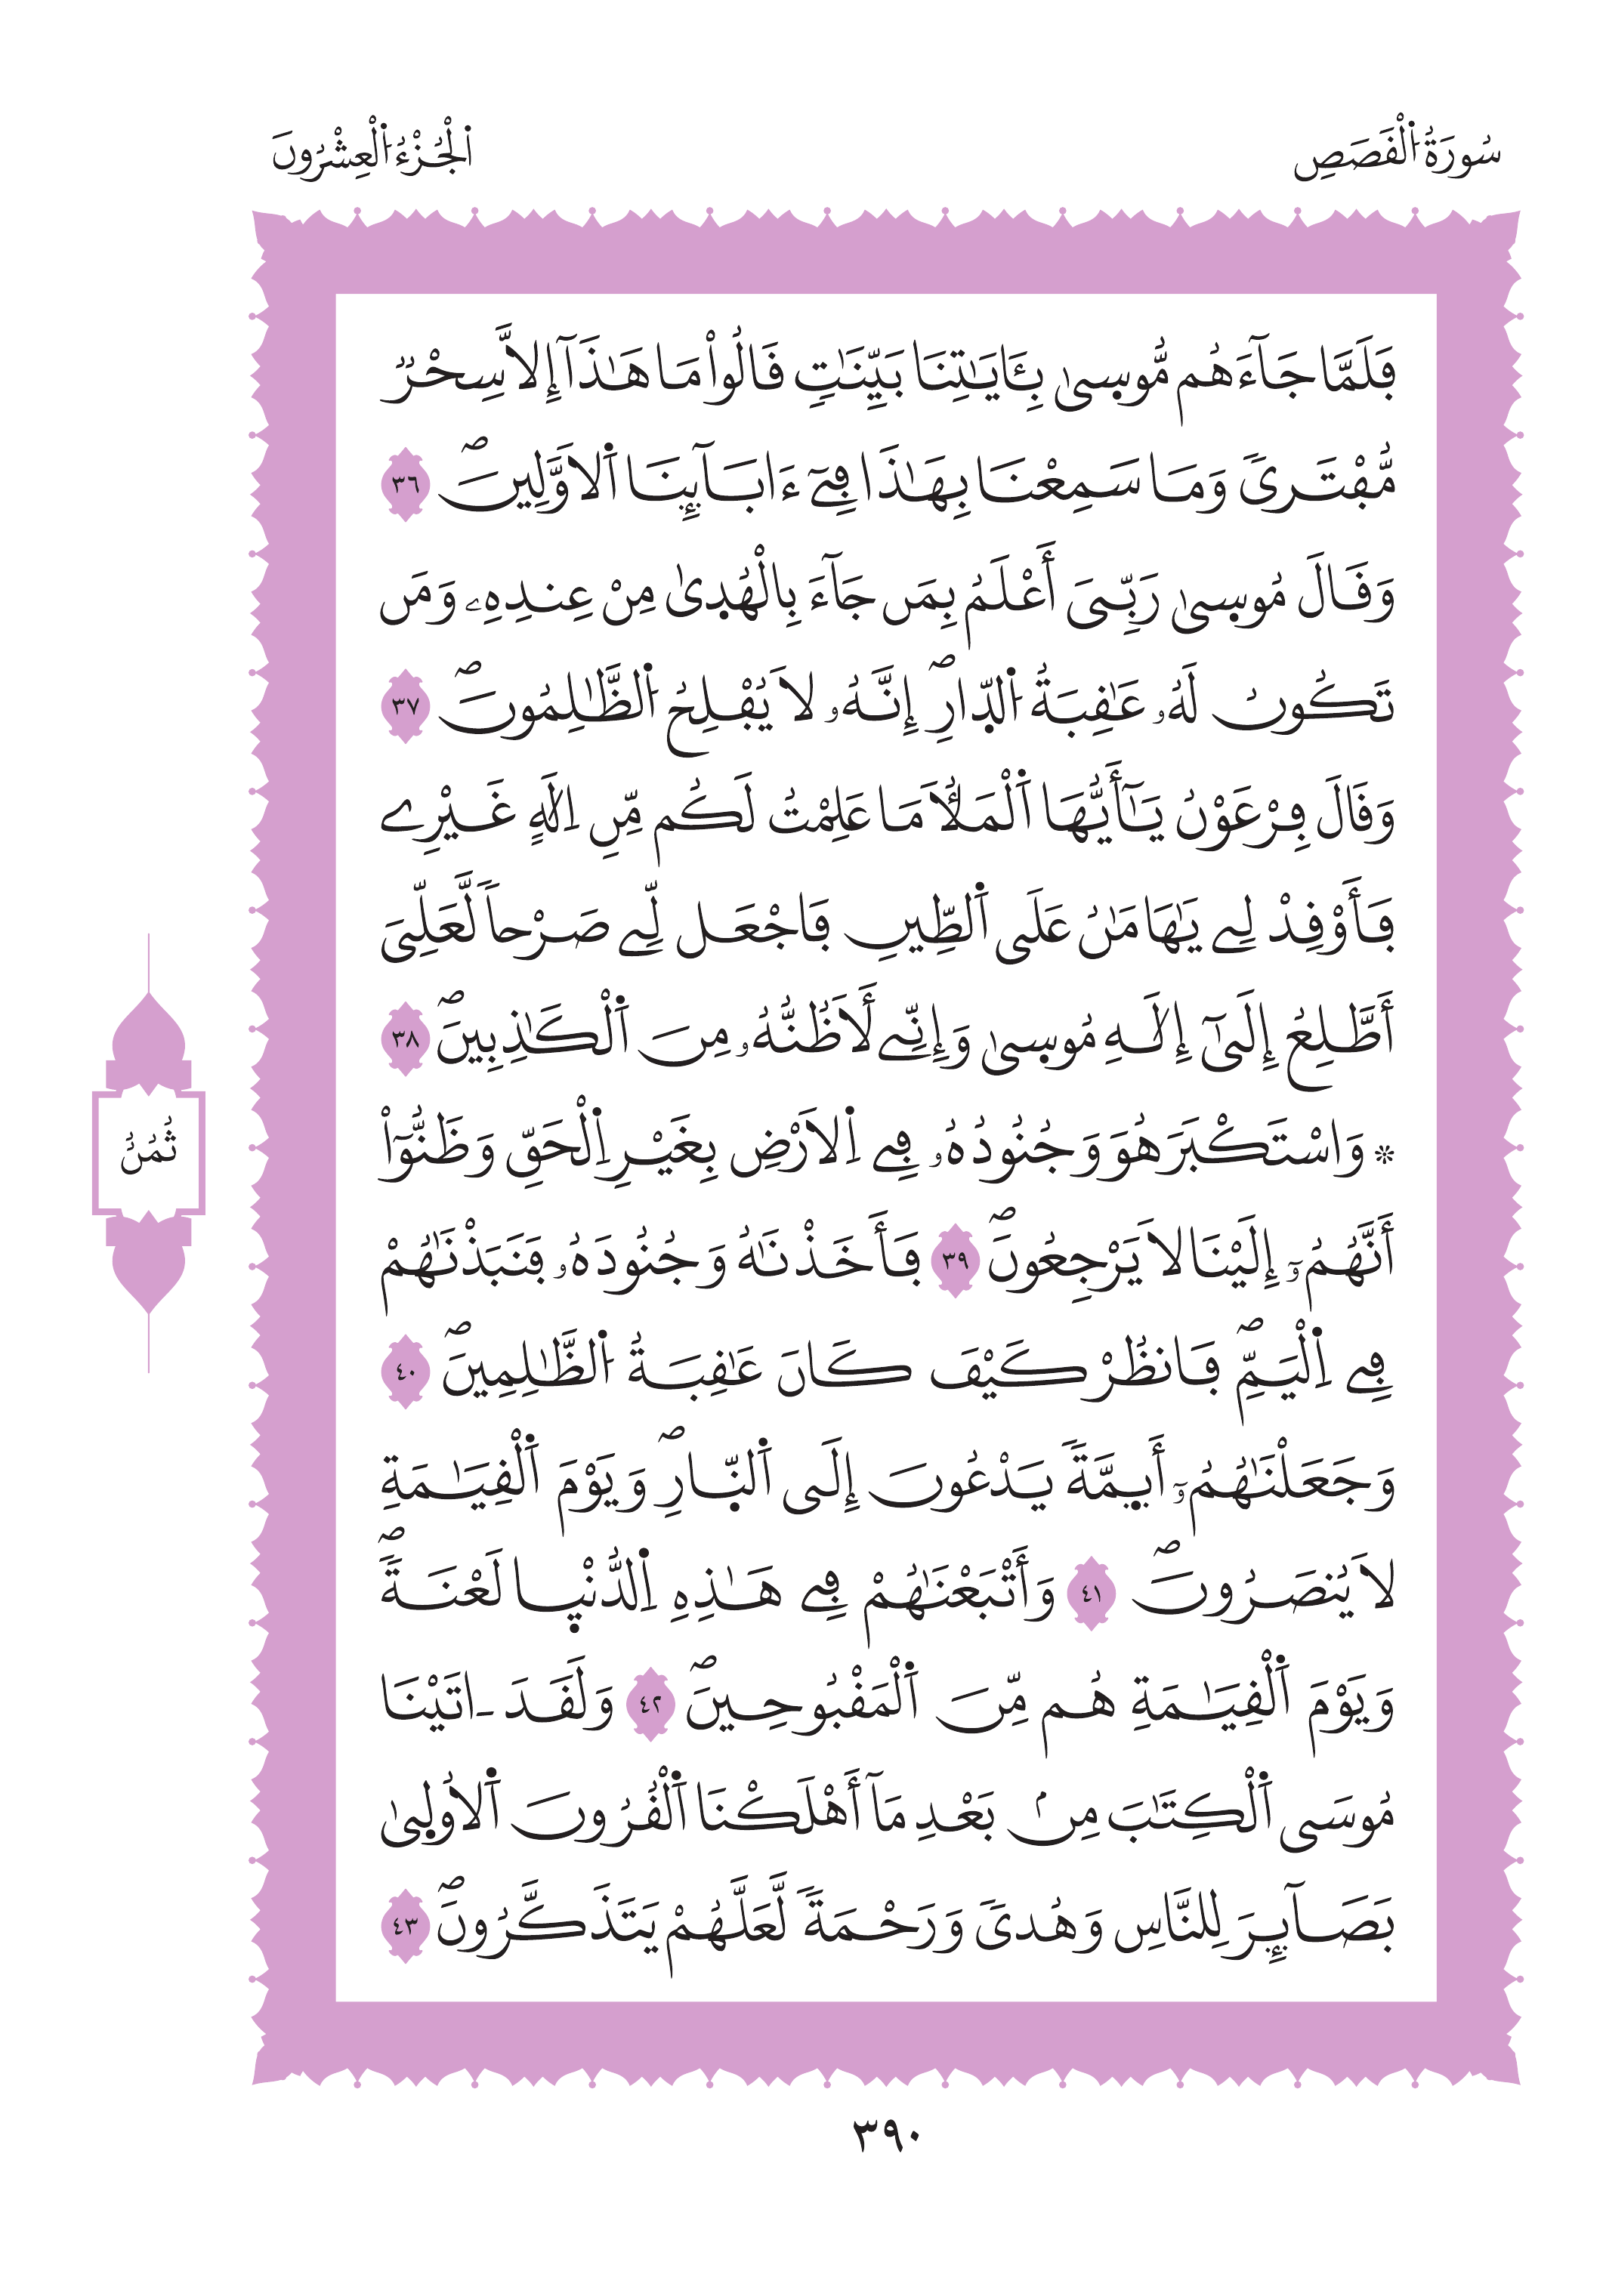 سُورَةُ اُ۬لْقَصَصِ
اَ۬لْجُزْءُ اُ۬لْعِشْرُونَ
فَلَمَّا جَآءَهُم مُّوس۪ىٰ بِـَٔايَٰتِنَا بَيِّنَٰتٖ قَالُواْ مَا هَٰذَآ إِلَّا سِحْرٞ
مُّفْتَرىٗ وَمَا سَمِعْنَا بِهَٰذَا فِےٓ ءَابَآئِنَا اَ۬لَاوَّلِينَۖ ٣٦
وَقَالَ مُوس۪ىٰ رَبِّيَ أَعْلَمُ بِمَن جَآءَ بِالْهُد۪ىٰ مِنْ عِندِهِۦ وَمَن
تَكُونُ لَهُۥ عَٰقِبَةُ اُ۬لدّ۪ارِۖ إِنَّهُۥ لَا يُفْلِحُ اُ۬لظَّٰلِمُونَۖ ٣٧
وَقَالَ فِرْعَوْنُ يَٰٓأَيُّهَا اَ۬لْمَلَأُ مَا عَلِمْتُ لَكُم مِّنِ اِلَٰهٍ غَيْرِے
فَأَوْقِدْ لِے يَٰهَٰمَٰنُ عَلَى اَ۬لطِّينِ فَاجْعَل لِّے صَرْحاٗ لَّعَلِّيَ
أَطَّلِعُ إِلَىٰٓ إِلَٰهِ مُوس۪ىٰ وَإِنِّے لَأَظُنُّهُۥ مِنَ اَ۬لْكَٰذِبِينَۖ ٣٨
۞ وَاسْتَكْبَرَ هُوَ وَجُنُودُهُۥ فِے اِ۬لَارْضِ بِغَيْرِ اِ۬لْحَقِّ وَظَنُّوٓاْ
أَنَّهُمُۥٓ إِلَيْنَا لَا يَرْجِعُونَۖ ٣٩ فَأَخَذْنَٰهُ وَجُنُودَهُۥ فَنَبَذْنَٰهُمْ
فِے اِ۬لْيَمِّۖ فَانظُرْ كَيْفَ كَانَ عَٰقِبَةُ اُ۬لظَّٰلِمِينَۖ ٤٠
وَجَعَلْنَٰهُمُۥٓ أَي۪مَّةٗ يَدْعُونَ إِلَى اَ۬لنّ۪ارِۖ وَيَوْمَ اَ۬لْقِيَٰمَةِ
لَا يُنصَرُونَۖ ٤١ وَأَتْبَعْنَٰهُمْ فِے هَٰذِهِ اِ۬لدُّنْي۪ا لَعْنَةٗۖ
وَيَوْمَ اَ۬لْقِيَٰمَةِ هُم مِّنَ اَ۬لْمَقْبُوحِينَۖ ٤٢ وَلَقَدَ اٰتَيْنَا
مُوسَى اَ۬لْكِتَٰبَ مِنۢ بَعْدِ مَآ أَهْلَكْنَا اَ۬لْقُرُونَ اَ۬لُاول۪ىٰ
بَصَآئِرَ لِلنَّاسِ وَهُدىٗ وَرَحْمَةٗ لَّعَلَّهُمْ يَتَذَكَّرُونَۖ ٤٣
ثُمُنُ
٣٩٠